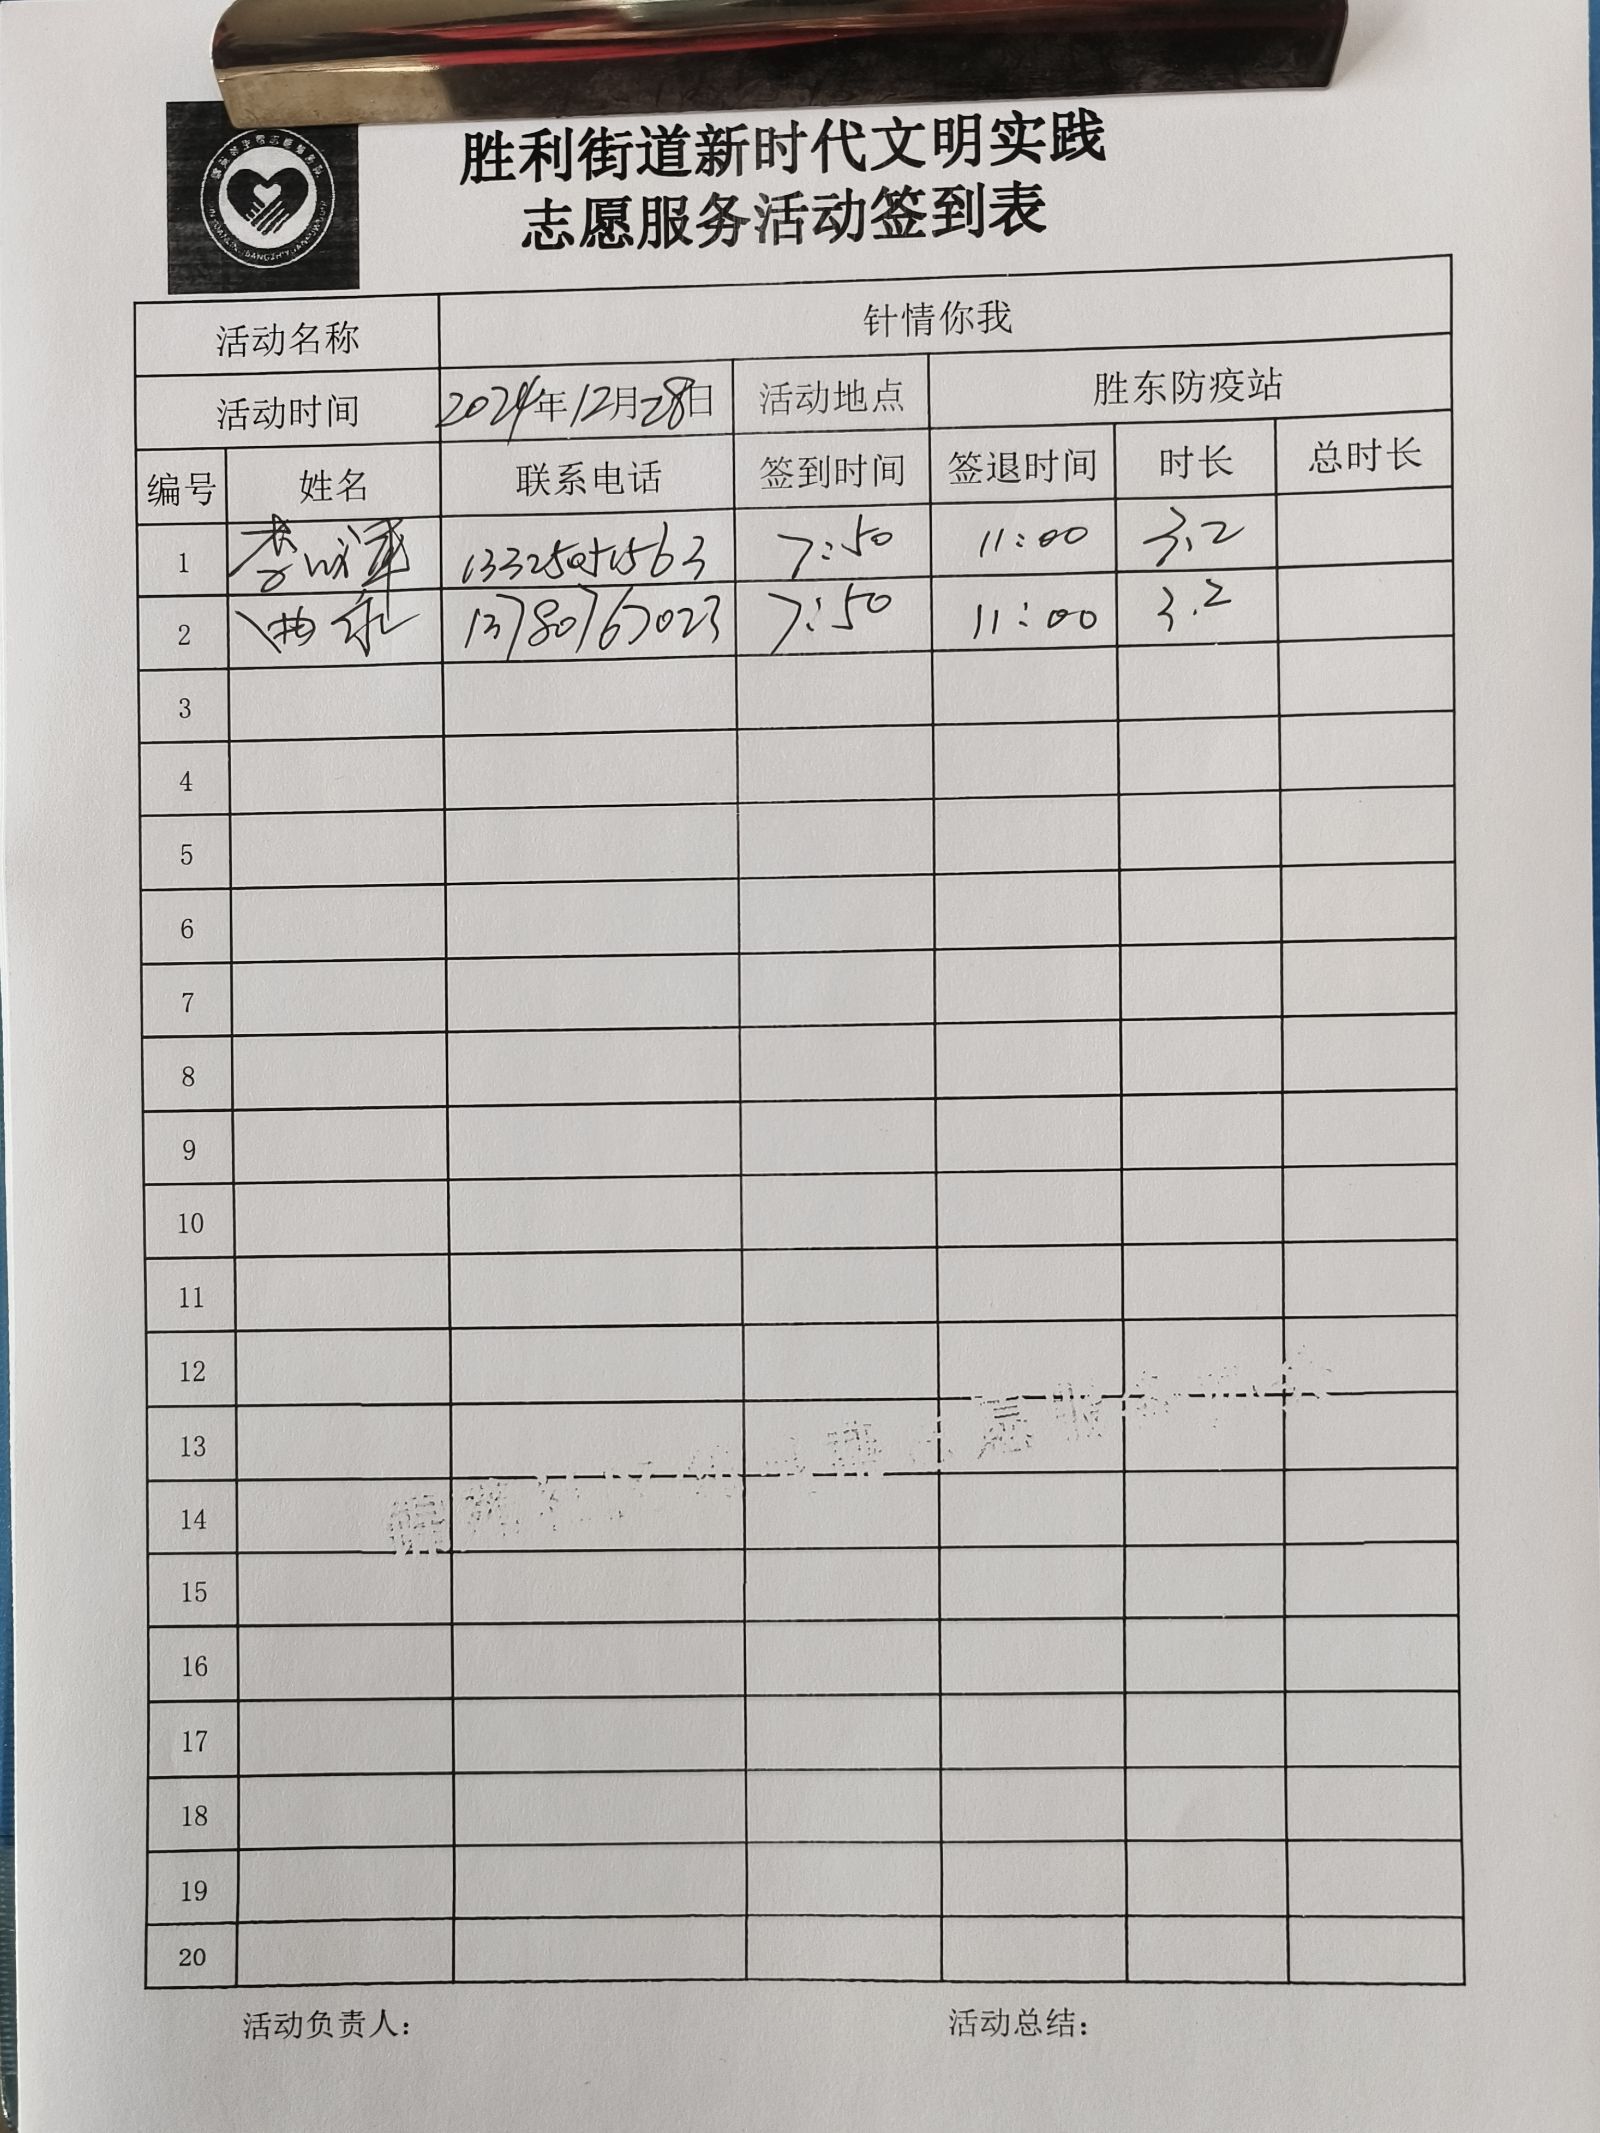 胜利街道新时代文明实践
志愿服务活动签到表
活动名称 针情你我
活动时间 2024年12月28日 活动地点 胜东防疫站
编号 姓名 联系电话 签到时间 签退时间 时长 总时长
1 李 13325051563 7:50 11:00 3.2
2 曲 13780767023 7:50 11:00 3.2
3
4
5
6
7
8
9
10
11
12
13
14
15
16
17
18
19
20
活动负责人: 活动总结: